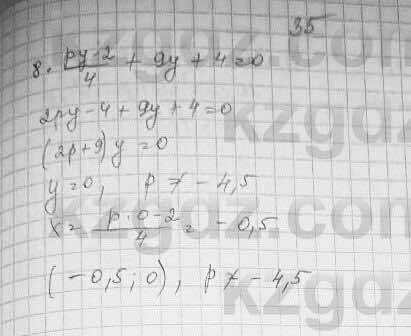 35
8. (py-2)/4 + 9y + 4 = 0
2py - 4 + 9y + 4 = 0
(2p+9) y = 0
y = 0, p ≠ - 4,5
x = (p · 0 - 2)/4 = - 0,5
(- 0,5 ; 0), p ≠ - 4,5
kzgdz.com
kzgdz.com
kzgdz.com
kzgdz.com